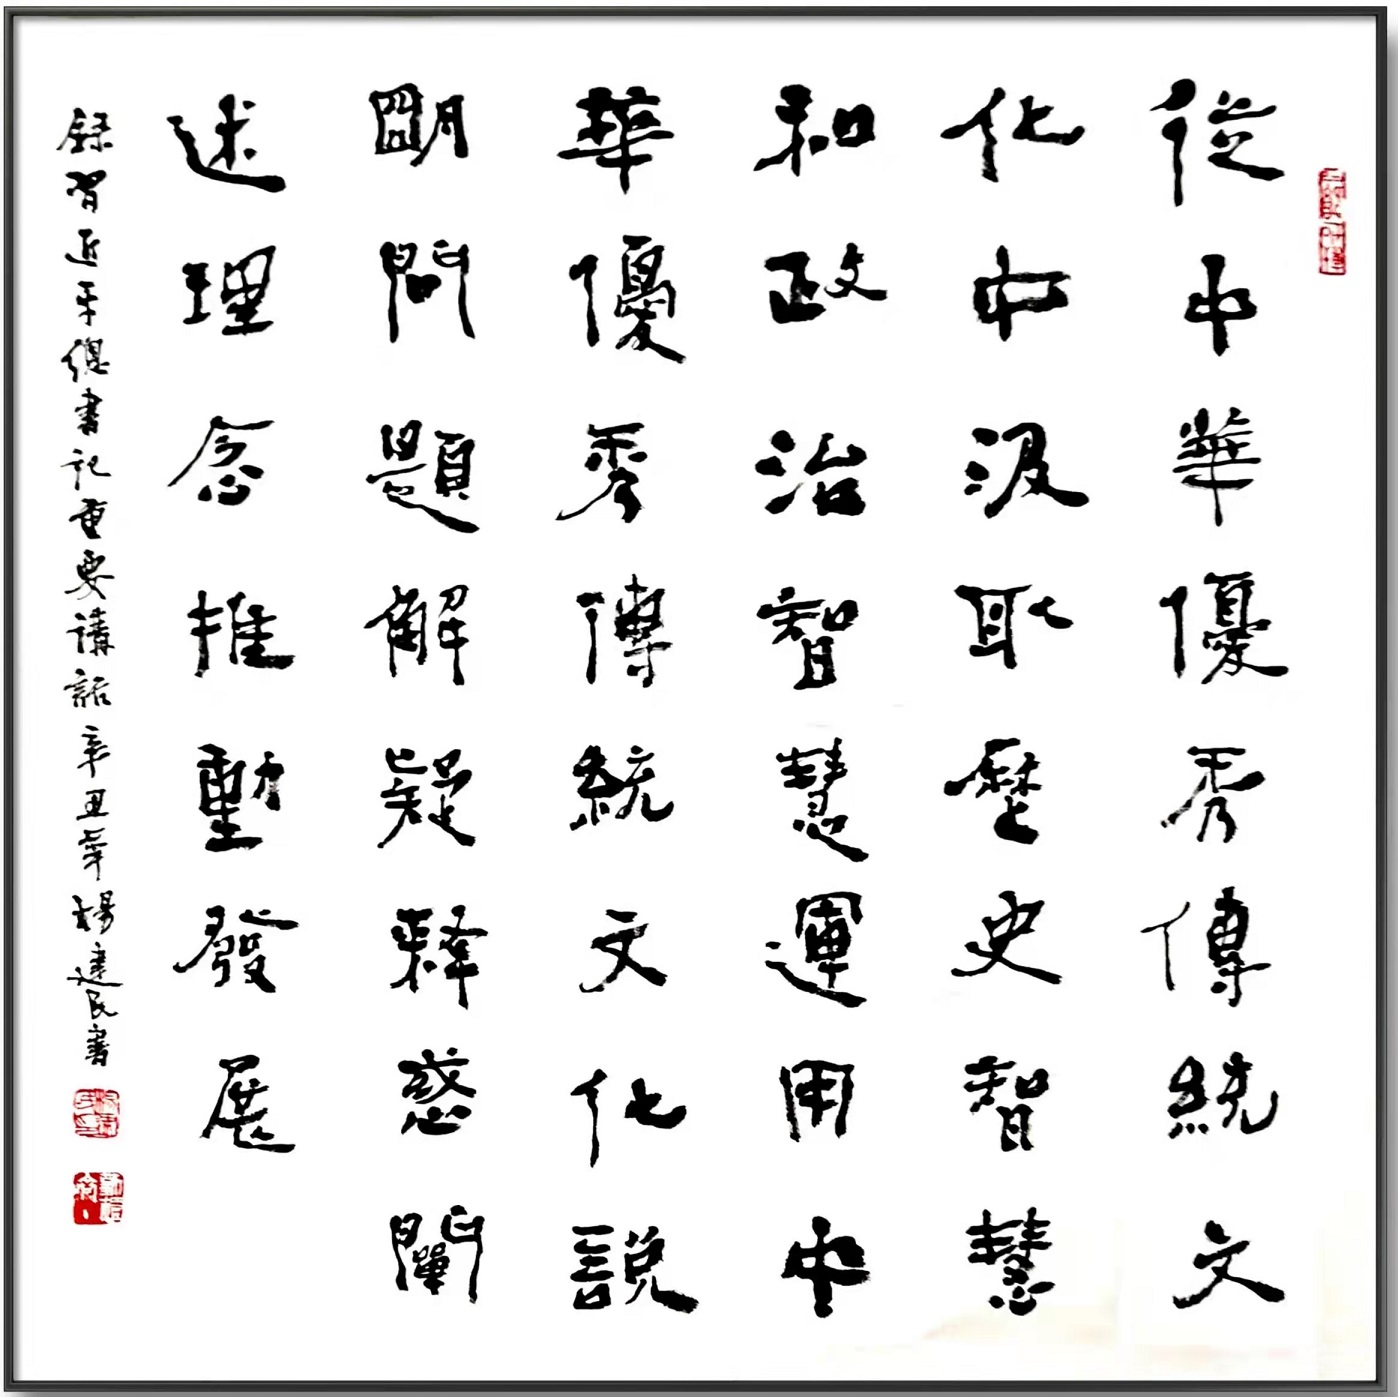 從中華優秀傳統文
化中汲取歷史智慧
和政治智慧運用中
華優秀傳統文化說
朙問題解疑釋惑闡
述理念推動發展
錄習近平總書記重要講話辛丑年楊建民書